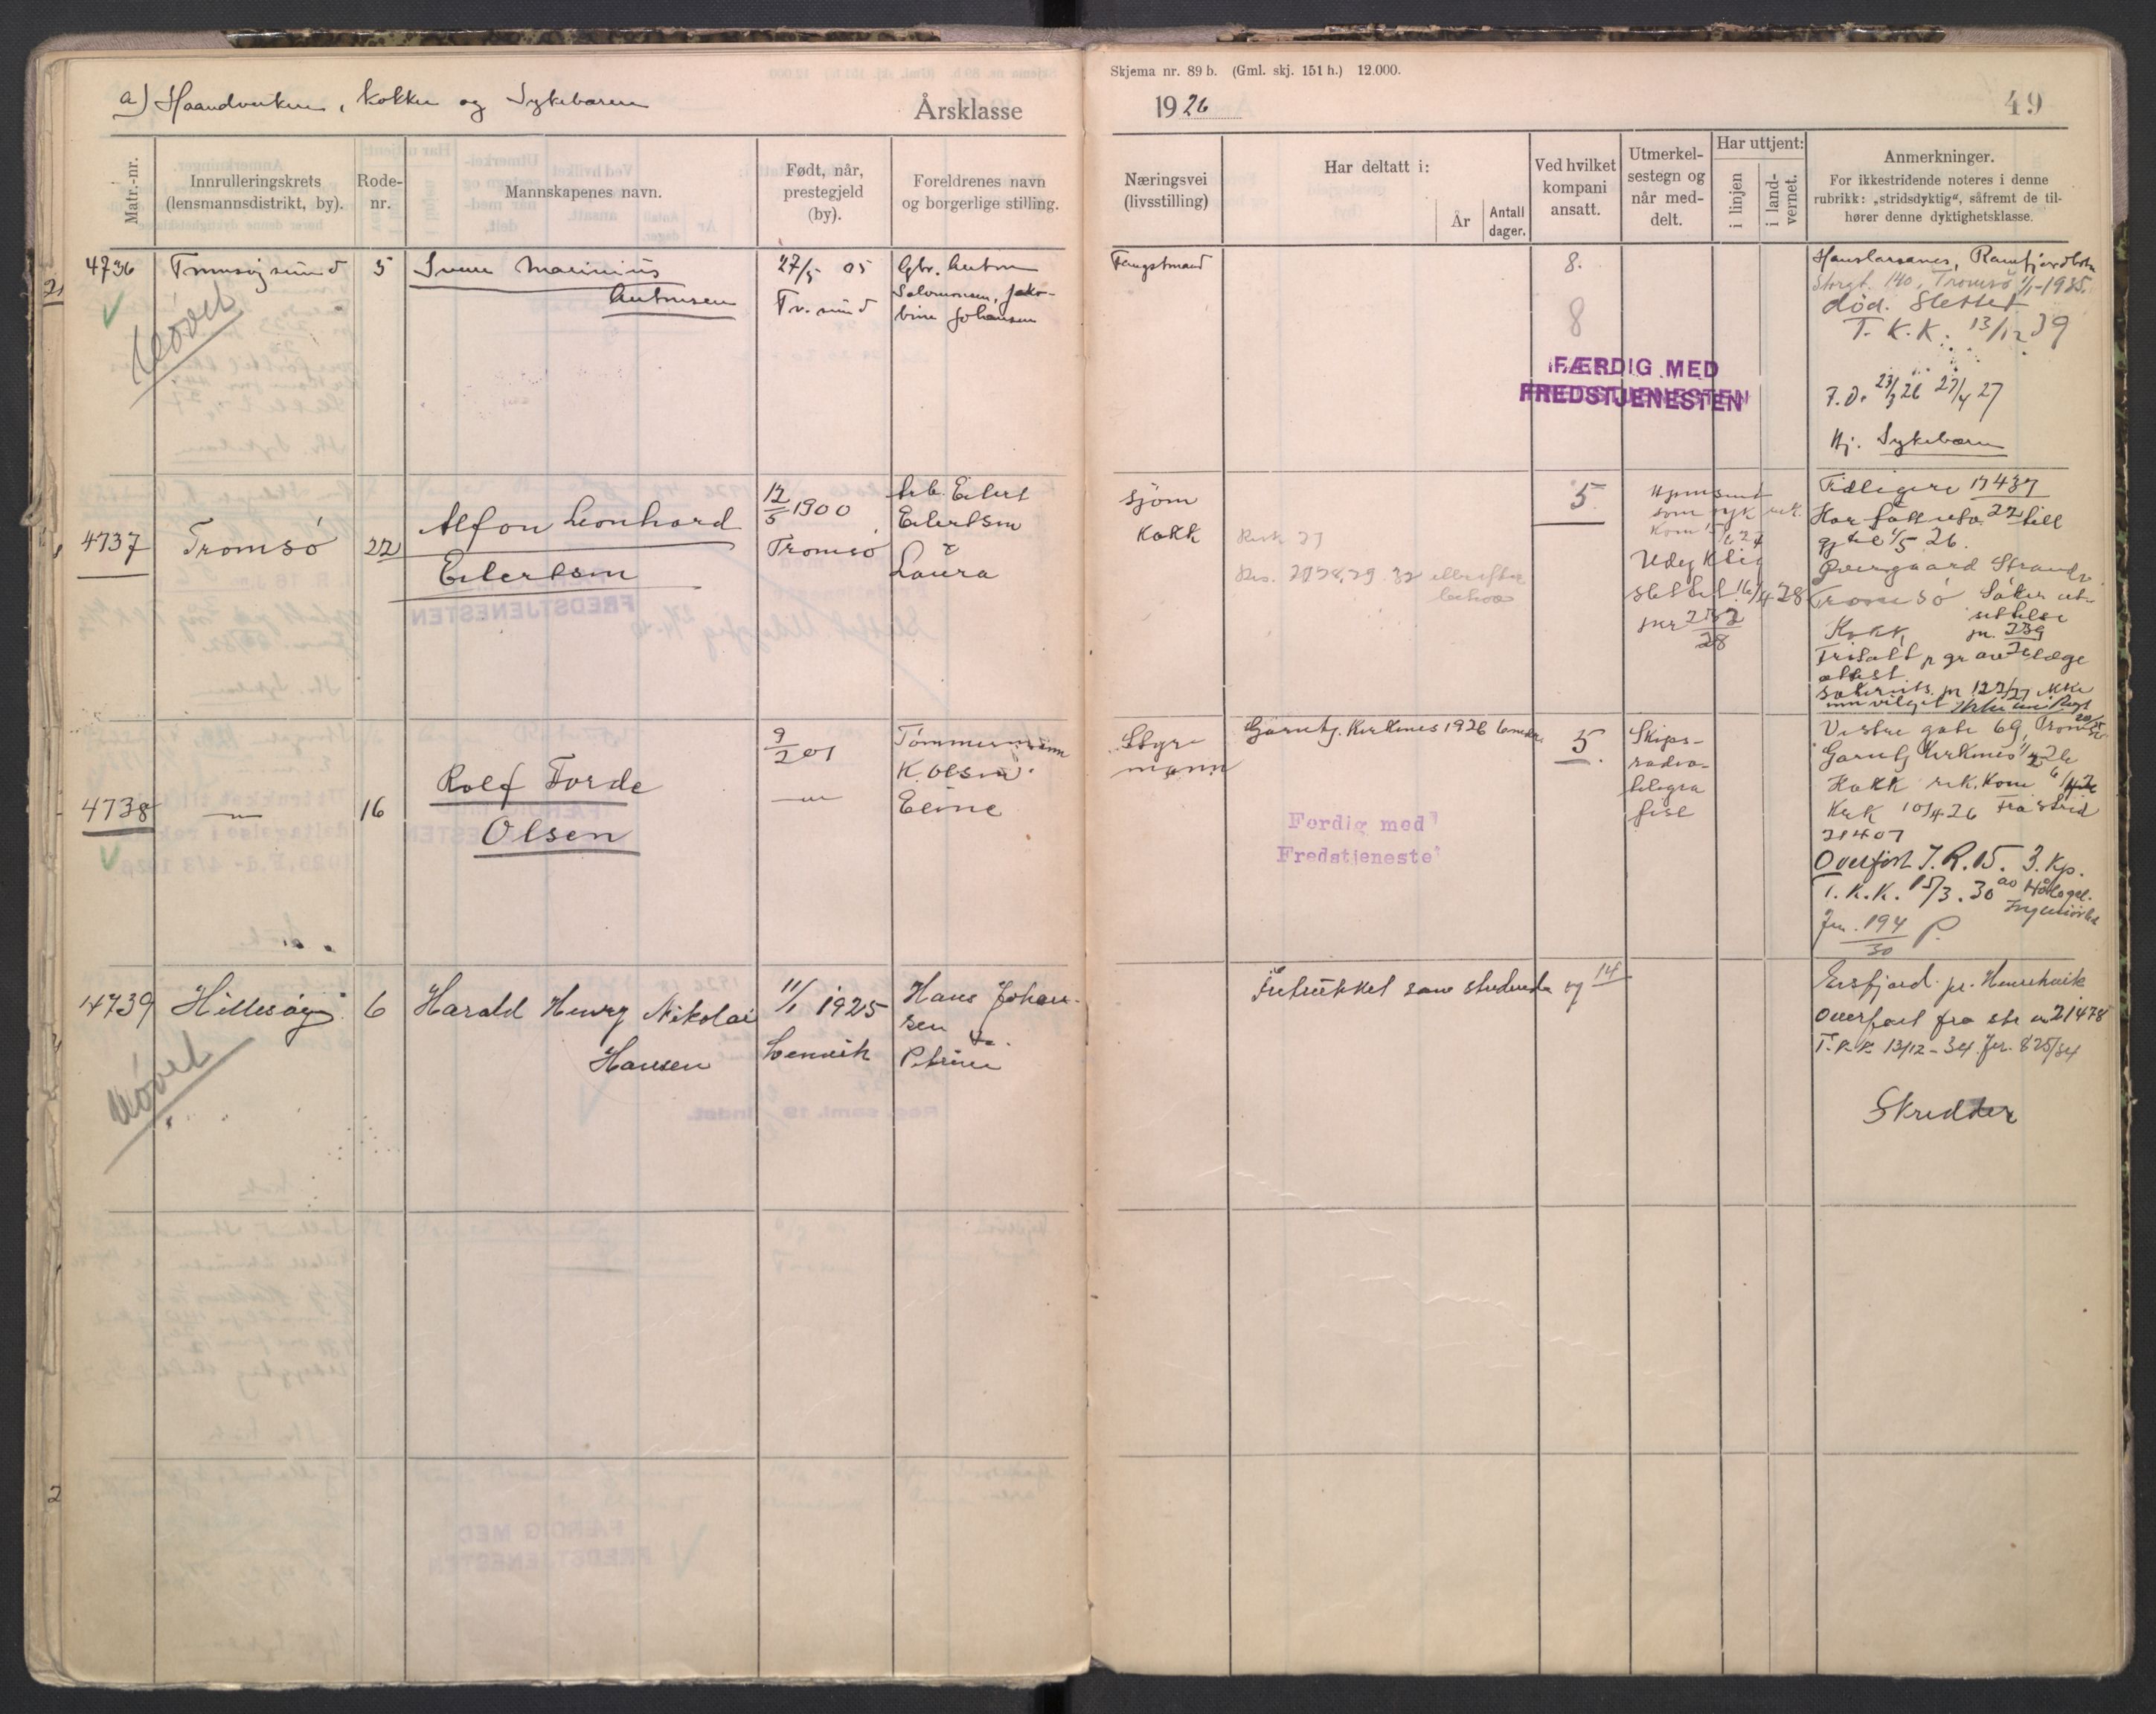 a) Haandverkere, kokker og Sykebærere
Årsklasse
Skjema nr. 89 b. (Gml. skj. 151 h.) 12.000.
1926
49
Matr.-nr.
Innrulleringskrets
(lensmannsdistrikt, by).
Rode-
nr.
Mannskapenes navn.
Født, når,
prestegjeld
(by).
Foreldrenes navn
og borgerlige stilling.
Næringsvei
(livsstilling)
Har deltatt i:
År
Antall
dager.
Ved hvilket
kompani
ansatt.
Utmerkel-
sestegn og
når med-
delt.
Har uttjent:
i linjen
i land-
vernet.
Anmerkninger.
For ikkestridende noteres i denne
rubrikk: „stridsdyktig“, såfremt de til-
hører denne dyktighetsklasse.
4736
Tromsøysund
5
Marinius
Antonsen
27/5 05
Tr. sund
Gbr. Anton
Salomonsen, Jako-
bine Johansen
Fangstmand
8.
8
FÆRDIG MED
FREDSTJENESTEN
Hanslarsanes, Ramfjordbotn
Storgt. 140, Tromsø 1/1-1935.
død. Slettet
T. K. K. 13/12 39
23/3 26 27/4 27
Hj. Sykebærer
Uøvet
4737
Tromsö
22
Alfon Leonhard
Eilertsen
12/5 1900
Tromsö
Arb. Eilert
Eilertsen
Laura
sjöm
Kokk
Rek 27
5
som syk rek.
Udyktig
slettet 16/4 28
jnr 232
28
Tidligere 17437
22 till
gj til 1/5 26.
Övergaard Strandv
Tromsö
Söker ut-
settelse
Kokk,
jn. 239
26
Fritatt p gr av læge
attest
jn 127/27 ikke
innvilget
4738
16
Rolf Torde
Olsen
9/2 01
Tömmermann
K. Olsen
Eline
Styr-
mann
Garntj. Kirkenes 1926 6 mndr.
Ferdig med
Fredstjeneste
5
Skips-
radio-
telegra
fist
Vestre gate 69, Tromsö
Garntj Kirkenes
Kokk rek. Kom
Rek 10/4 26 Fra strid
21407
Overført I.R. 15. 3. Kp.
T. K. K. 15/3. 30
Jnr. 194
30
4739
Hillesøy
6
Harald Henry Nikolai
Hansen
11/1 1925
Lenvik
Hans Johan-
sen
Petrine
Inntrukket som studerende og 14
Ersfjord pr. Henrikvik
Overført fra str nr 21478
T.K.K. 13/12-34. Jnr. 825/34
Skredder
Uøvet